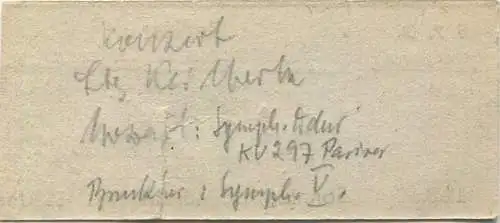 Konzert
Ltg
Mozart: Symph. D dur
KV 297 Pariser
Bruckner: Symph. V.